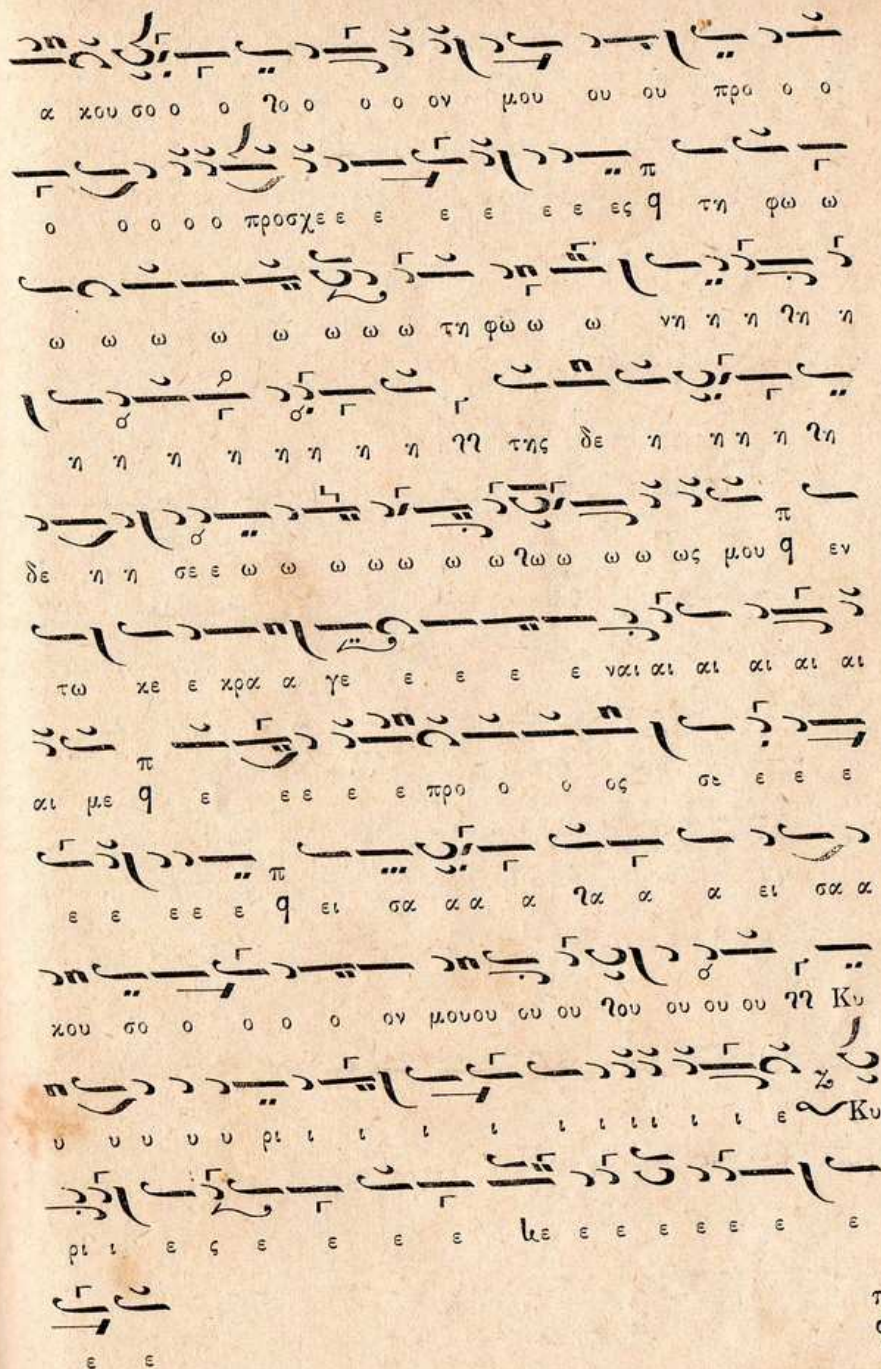 α κου σο ο ο το ο ο ο ον μου ου ου προ ο ο
ο ο ο ο ο προσχε ε ε ε ε ε ε ες π q τη φω ω
ω ω ω ω ω ω ω ω τη φω ω ω νη η η τη η
η η η η η η η η γγ της δε η η η η τη
δε η η σε ε ω ω ω ω ω ω ω τω ω ω ω ως μου π q εν
τω κε ε κρα α γε ε ε ε ε ναι αι αι αι αι αι
αι με π q ε ε ε ε ε προ ο ο ος σε ε ε ε
ε ε ε ε ε π q ει σα α α α τα α α ει σα α
κου σο ο ο ο ο ον μουου ου ου του ου ου ου γγ Κυ
υ υ υ υ υ ρι ι ι ι ι ι ι ι ι ι ε Κυ
ρι ι ε ς ε ε ε ε ε ε ε ε ε ε ε ε
ε ε